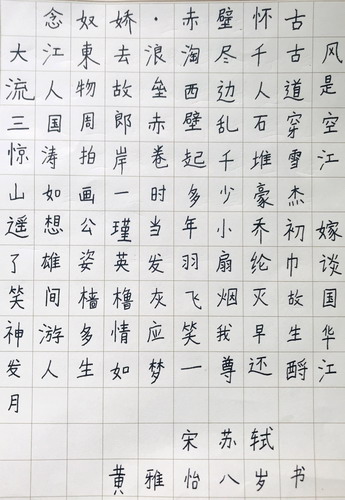 念奴娇·赤壁怀古
大江東去浪淘尽千古风
流人物故垒西边人道是
三国周郎赤壁乱石穿空
惊涛拍岸卷起千堆雪江
山如画一时多少豪杰
遥想公瑾当年小乔初嫁
了雄姿英发羽扇纶巾谈
笑间樯橹灰飞烟灭故国
神游多情应笑我早生华
发人生如梦一尊还酹江
月
宋苏轼
黄雅怡八岁书